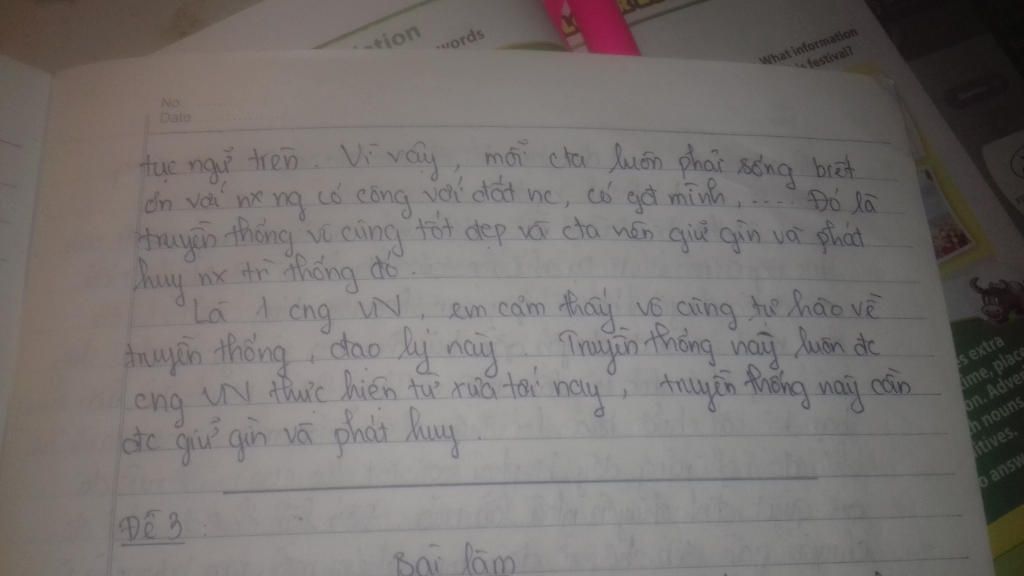 ition
words
What information
is festival?
No
Date
tục ngữ trên. Vì vậy, mỗi cta luôn phải sống biết
ơn với nx ng có công với đất nc, có gđ mình, .... Đó là
truyền thống vô cùng tốt đẹp và cta nên giữ gìn và phát
huy nx tr` thống đó.
Là 1 cng VN, em cảm thấy vô cùng tự hào về
truyền thống, đạo lý này. Truyền thống này luôn đc
cng VN thực hiện từ xưa tới nay, truyền thống này cần
đc giữ gìn và phát huy.
Đề 3:
Bài làm
s extra
time, place
on. Adver
h nouns,
itives.
o answ